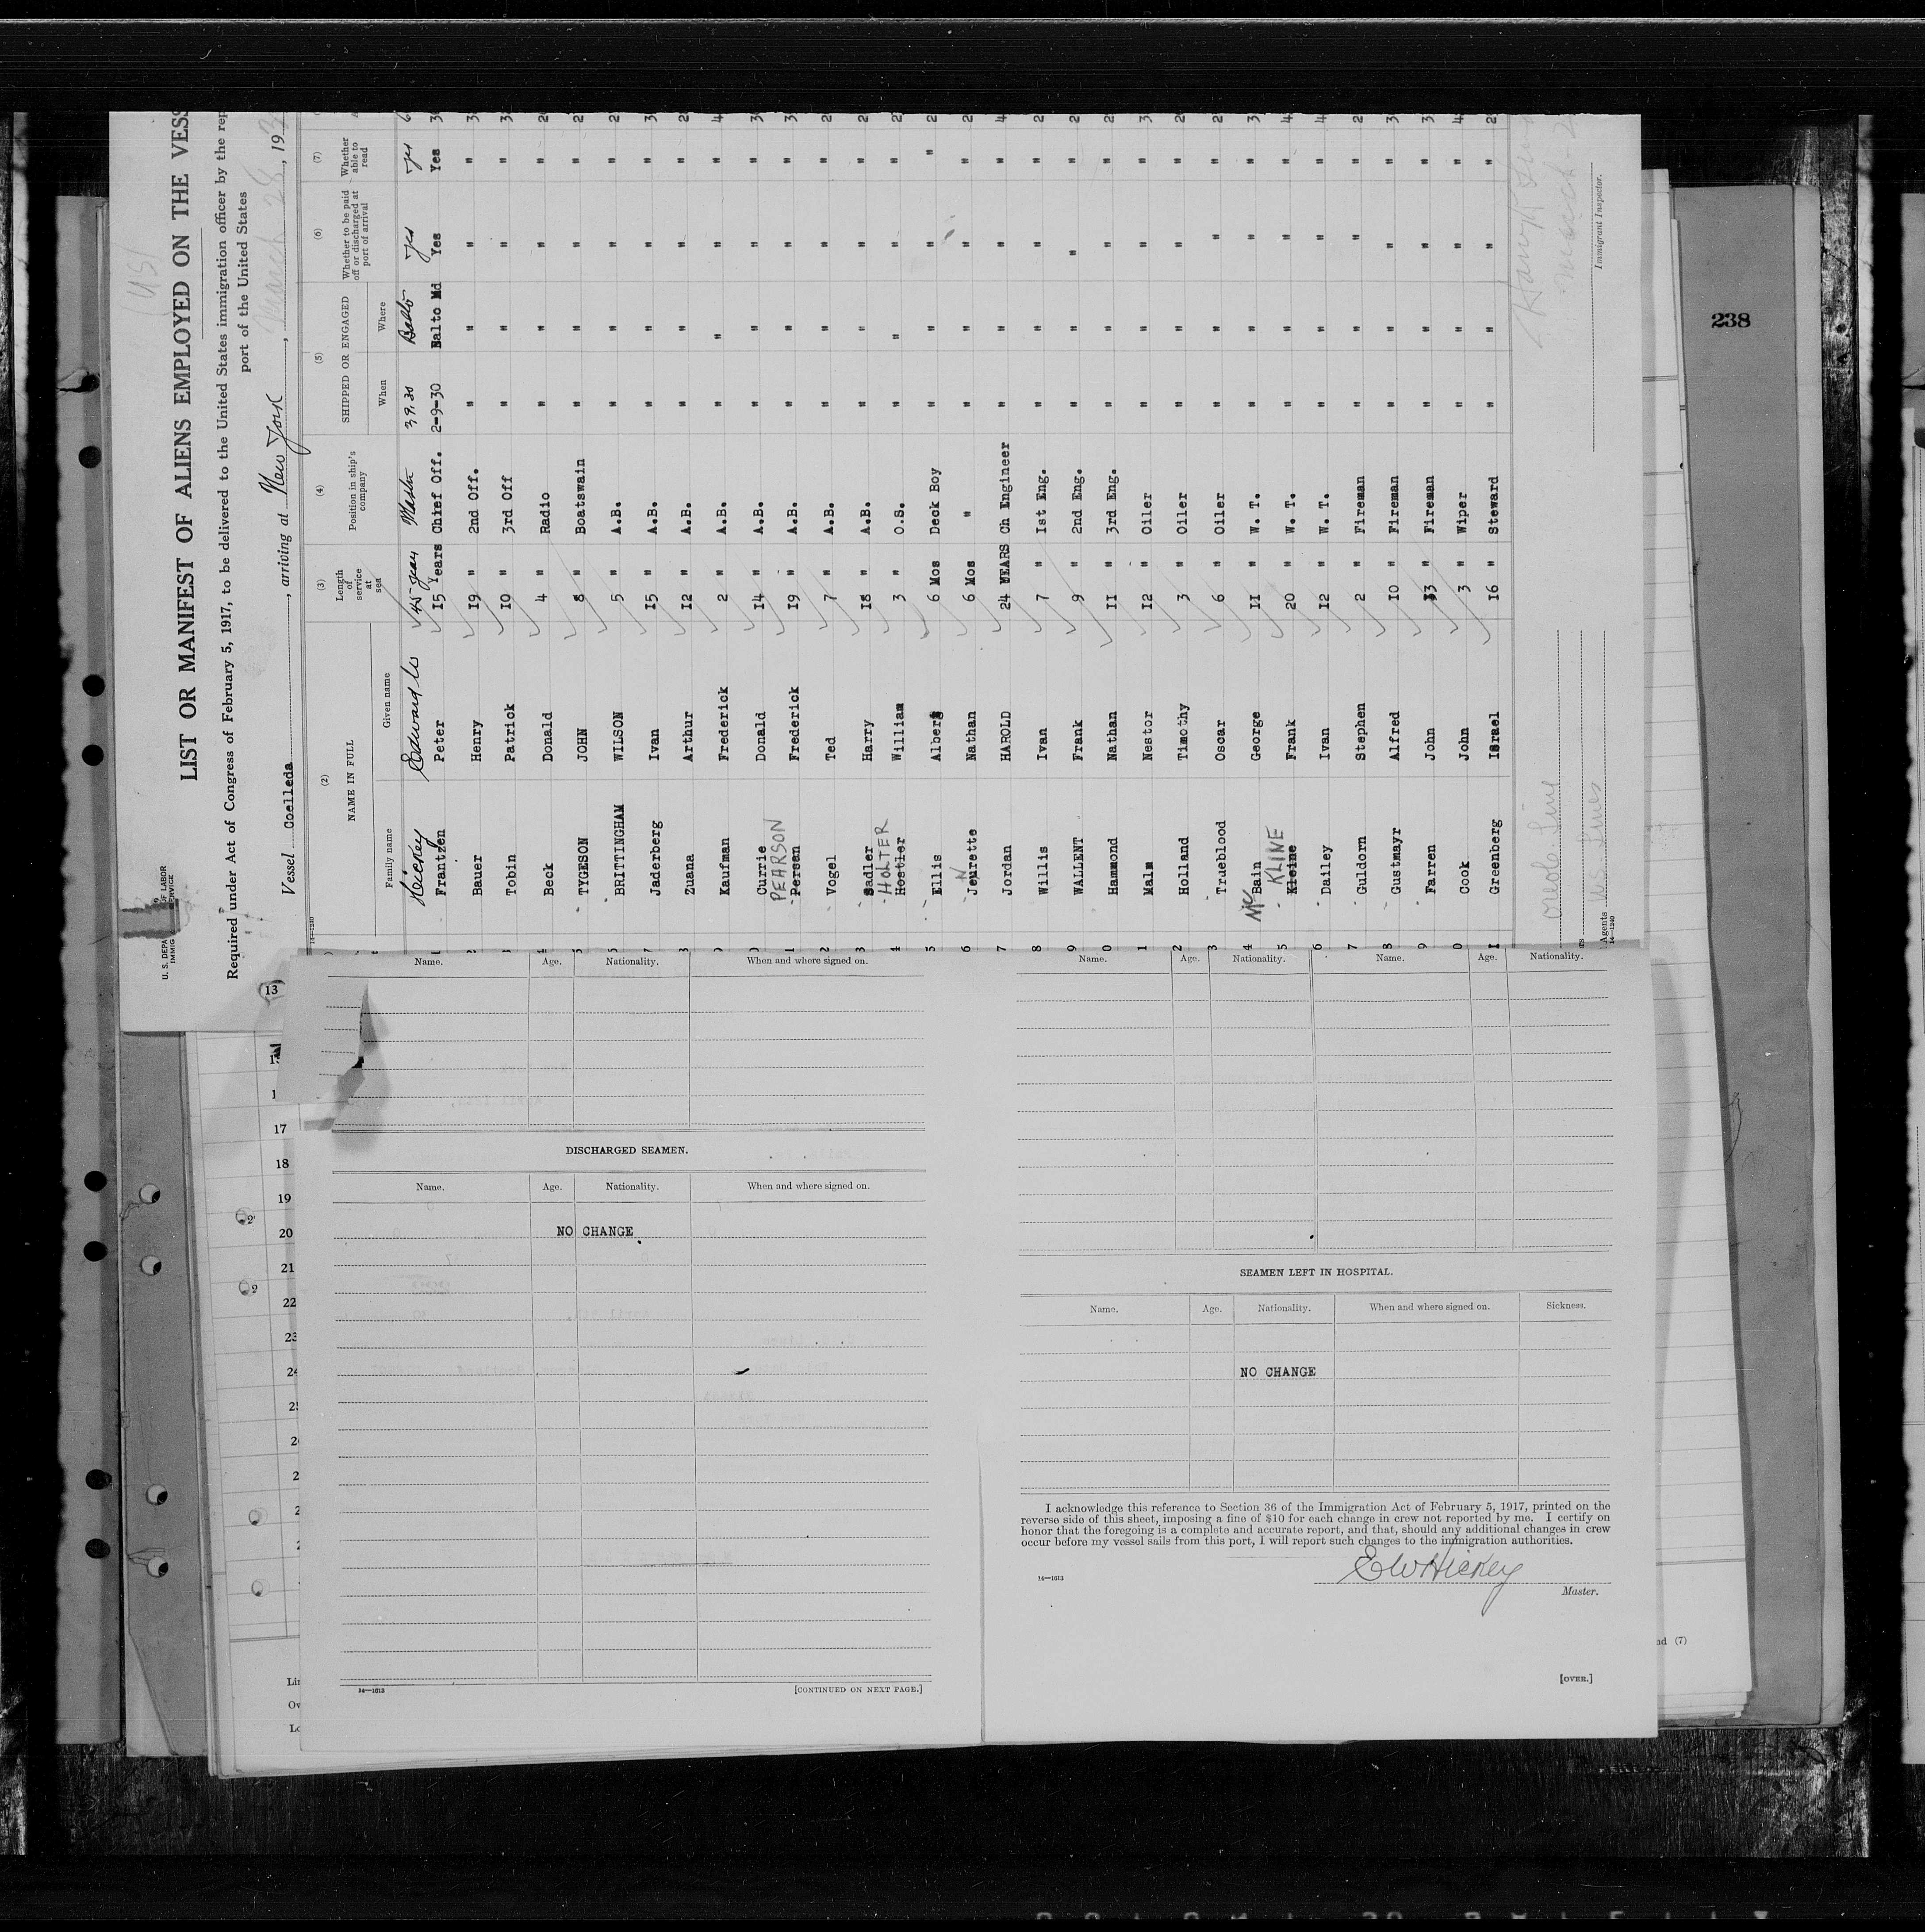 LIST OR MANIFEST OF ALIENS EMPLOYED ON THE VESS
Required under Act of Congress of February 5, 1917, to be delivered to the United States immigration officer by the rep
port of the United States
Vessel Coelleda, arriving at New York, March 28, 19
(2) (3) (4) (5) (6) (7)
NAME IN FULL Length of service at sea Position in ship's company SHIPPED OR ENGAGED Whether to be paid off or discharged at port of arrival Whether able to read
Family name Given name When Where
Hickey Edward W 45 years Master 3 9. 30 Balto yes yes
1 Frantzen Peter 15 Years Chief Off. 2-9-30 Balto Md Yes Yes
2 Bauer Henry 19 " 2nd Off. " " " "
Tobin Patrick 10 " 3rd Off " " " "
4 Beck Donald 4 " Radio " " " "
TYGESON JOHN 8 " Boatswain " " " "
BRITTINGHAM WILSON 5 " A.B. " " " "
7 Jaderberg Ivan 15 " A.B. " " " "
Zuana Arthur 12 " A.B. " " " "
Kaufman Frederick 2 " A.B. " " " "
0 Currie Donald 14 " A.B. " " " "
PEARSON
1 Persen Frederick 19 " A.B. " " " "
2 Vogel Ted 7 " A.B. " " " "
3 Sadler Harry 18 " A.B. " " " "
HOLTER
4 Hostler William 3 " O.S. " " " "
5 Ellis Albert 6 Mos Deck Boy " " " "
6 Jeurette Nathan 6 Mos " " " " "
7 Jordan HAROLD 24 YEARS Ch Engineer " " " "
8 Willis Ivan 7 " 1st Eng. " " " "
9 WALLENT Frank 9 " 2nd Eng. " " " "
0 Hammond Nathan 11 " 3rd Eng. " " " "
1 Malm Nestor 12 " Oiler " " " "
2 Holland Timothy 3 " Oiler " " " "
3 Trueblood Oscar 6 " Oiler " " " "
4 Mc Bain George 11 " W. T. " " " "
KLINE
5 Kleine Frank 20 " W. T. " " " "
6 Dailey Ivan 12 " W. T. " " " "
7 Guldorn Stephen 2 " Fireman " " " "
8 Gustmayr Alfred 10 " Fireman " " " "
9 Farren John 33 " Fireman " " " "
0 Cook John 3 " Wiper " " " "
1 Greenberg Israel 16 " Steward " " " "
Immigrant Inspector.
Agents U.S. Lines
14—1240
238
13
17
18
19
20
21
22
23
24
Name. Age. Nationality. When and where signed on.
DISCHARGED SEAMEN.
Name. Age. Nationality. When and where signed on.
NO CHANGE
14—1613 [CONTINUED ON NEXT PAGE.]
Name. Age. Nationality. Name. Age. Nationality.
SEAMEN LEFT IN HOSPITAL.
Name. Age. Nationality. When and where signed on. Sickness.
NO CHANGE
I acknowledge this reference to Section 36 of the Immigration Act of February 5, 1917, printed on the
reverse side of this sheet, imposing a fine of $10 for each change in crew not reported by me. I certify on
honor that the foregoing is a complete and accurate report, and that, should any additional changes in crew
occur before my vessel sails from this port, I will report such changes to the immigration authorities.
E W Hickey
14—1613 Master.
[OVER.]
nd (7)